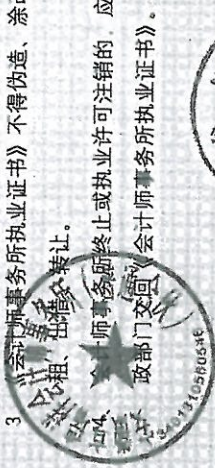 3、《会计师事务所执业证书》不得伪造、涂
租、出借、转让。
4、会计师事务所终止或执业许可注销的，应
政部门交回《会计师事务所执业证书》。